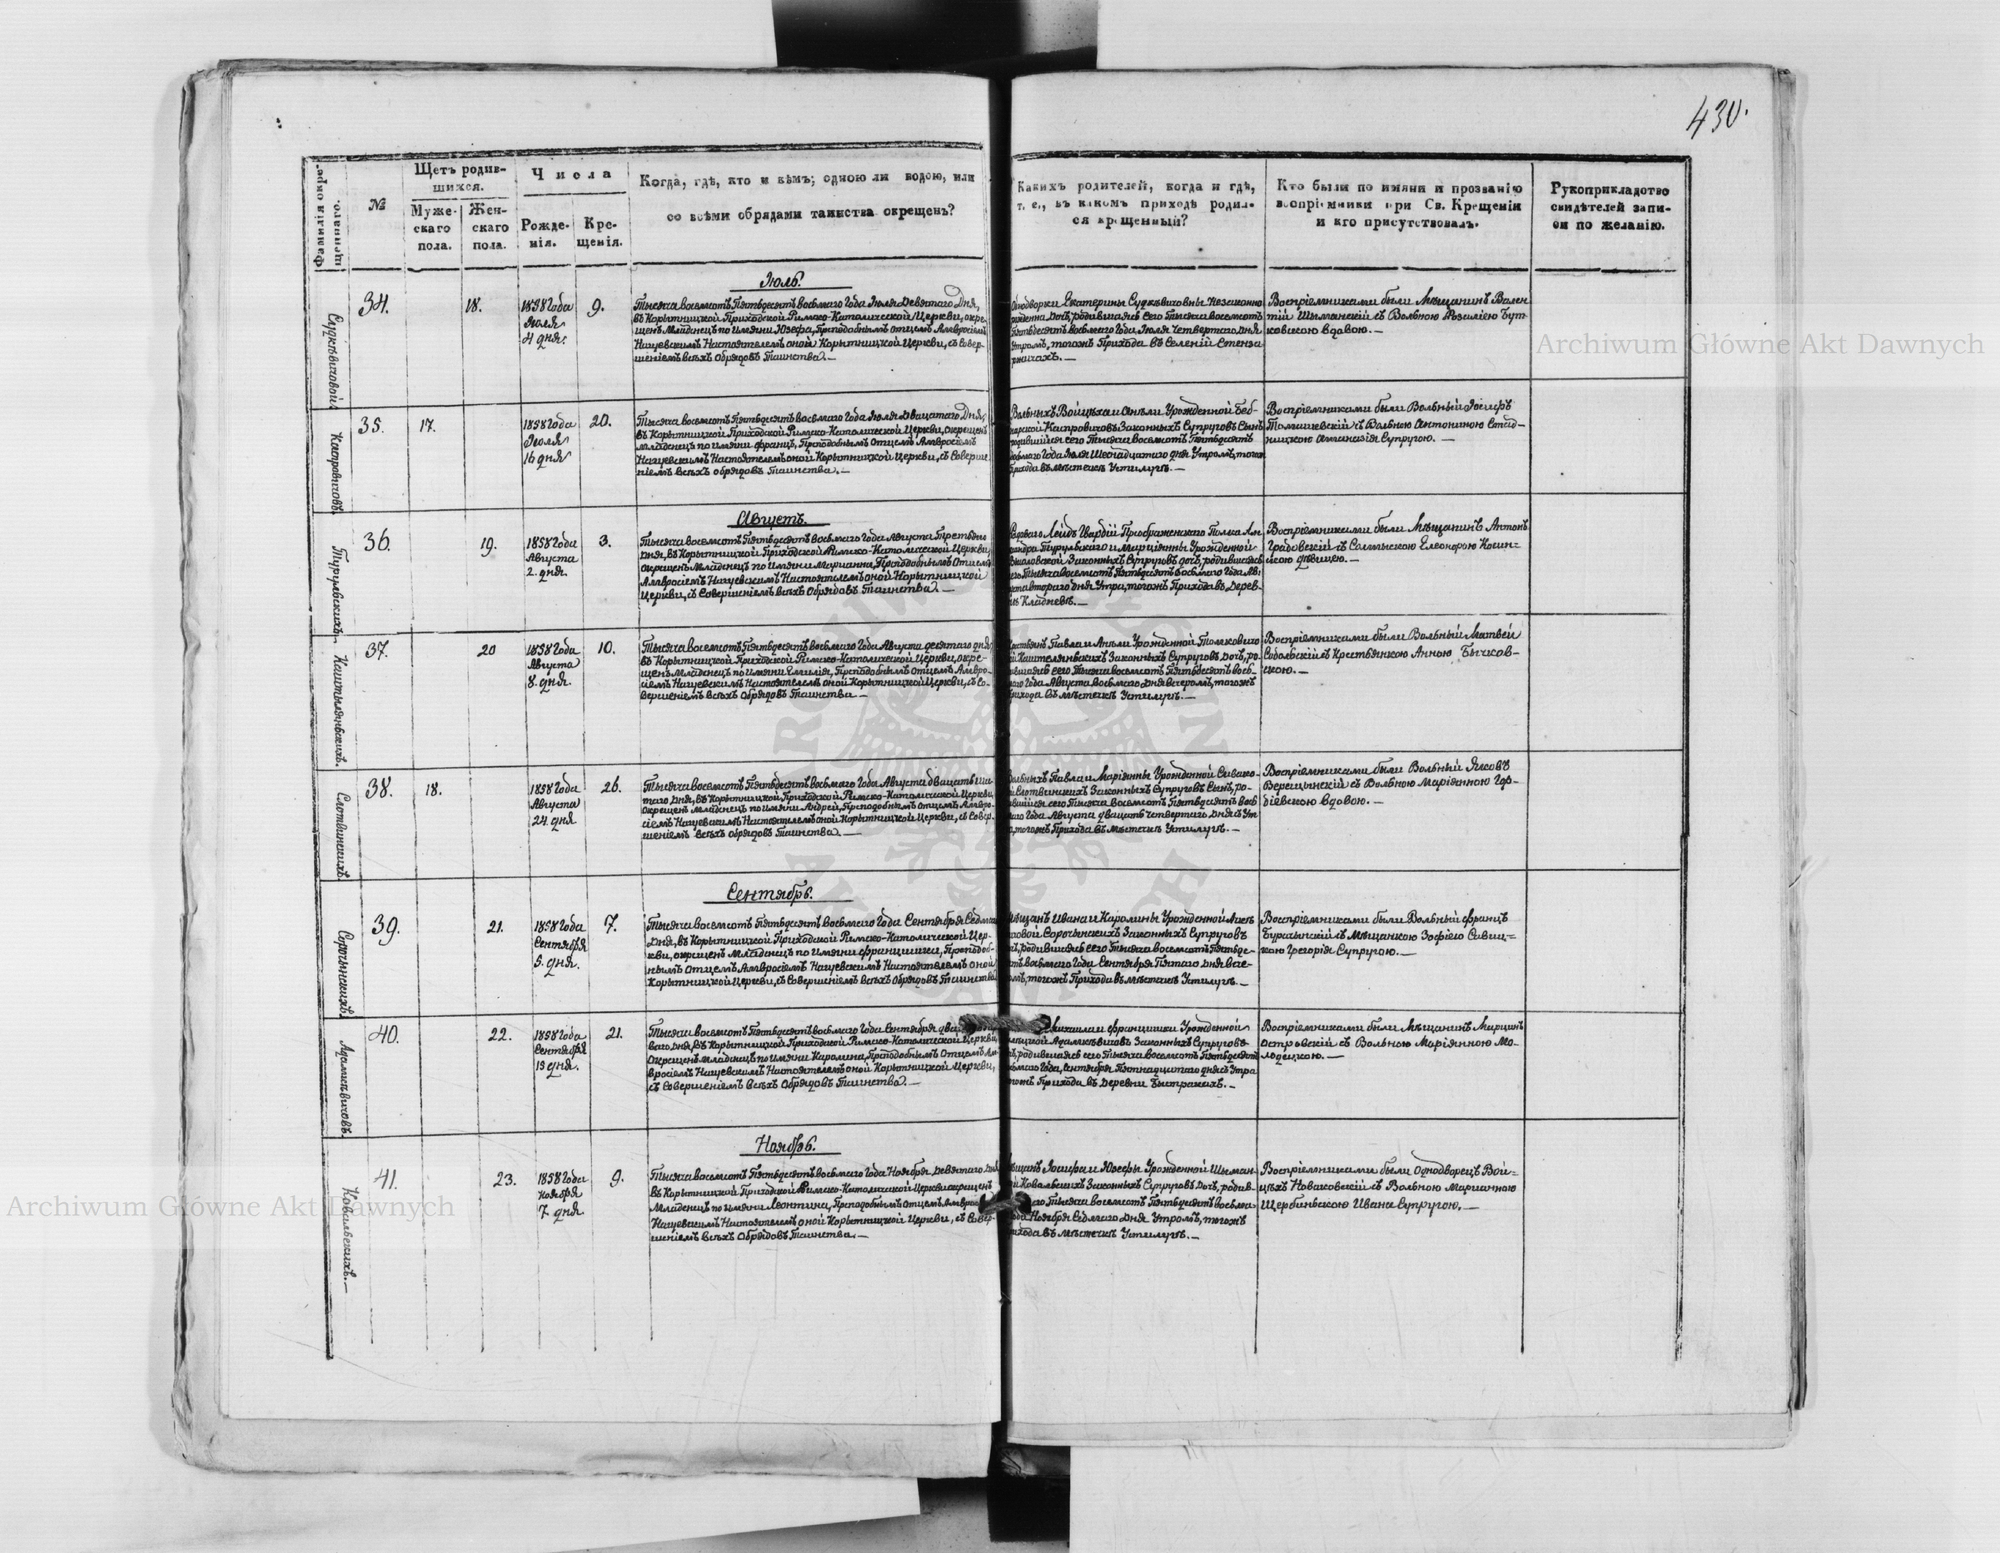 430.
Фамилія окре-
щеннаго.
№
Щетъ родив-
шихся.
Муже-
скаго
пола.
Жен-
скаго
пола.
Числа
Рожде-
нія.
Кре-
щенія.
Когда, гдѣ, кто и кѣмъ; одною ли водою, или
со всѣми обрядами таинства окрещенъ?
Какихъ родителей, когда и гдѣ,
т. е., въ какомъ приходѣ родил-
ся крещенный?
Кто были по имяни и прозванію
воспріемники при Св. Крещеніи
и кто присутствовалъ.
Рукоприкладство
свидѣтелей запи-
си по желанію.
Іюль.
34.
18.
1858 Года
Іюля
4 дня.
9.
Тысяча восемсотъ Пятьдесятъ восьмаго Года Іюля Девятаго Дня,
въ Корытницкой Приходской Римско-Католической Церкви, окре-
щенъ Младенецъ по имяни Юзефа, Преподобнымъ отцемъ Амвросіемъ
Нацевскимъ Настоятелемъ оной Корытницкой Церкви, съ Совер-
шеніемъ всѣхъ Обрядовъ Таинства.—
Однодворки Екатерины Судкѣвичовны Незаконно-
рожденна Дочь, родившаяся сего Тысяча восемсотъ
Пятьдесятъ восьмаго Года Іюля Четвертаго Дня
Утромъ, тогожъ Прихода въ Селеніи Стенза-
рычахъ.—
Воспріемниками были Мѣщанинъ Вален-
тій Шыманскій съ Вольною Розаліею Бут-
ковскою вдовою.—
Каспровичовъ.
35.
17.
1858 Года
Іюля
16 дня
20.
Тысяча восемсотъ Пятьдесятъ восьмаго Года Іюля Двацатаго Дня,
въ Корытницкой Приходской Римско-Католической Церкви, окрещенъ
Младенецъ по имяни Францъ, Преподобнымъ Отцемъ Амвросіемъ
Нацевскимъ Настоятелемъ оной Корытницкой Церкви, съ Соверше-
ніемъ всѣхъ обрядовъ Таинства.—
Вольныхъ Войцѣха и Анѣли Урожденной Беб-
Каспровичовъ Законныхъ Супруговъ Сынъ
родившійся сего Тысяча восемсотъ Пятьдесятъ
восьмаго Года Іюля Шеснадцатаго дня Утромъ, тогожъ
Прихода въ мѣстечкѣ Устилугѣ.—
Воспріемниками были Вольный Іосифъ
Томашевскій съ Вольною Антониною Стад-
ницкою Атаназія Супругою.—
Августъ.
36.
19.
1858 Года
Августа
2. дня.
3.
Тысяча восемсотъ Пятьдесятъ восьмаго Года Августа Третьяго
Дня, въ Корытницкой Приходской Римско-Католической Церкви,
окрещенъ Младенецъ по имяни Марианна, Преподобнымъ Отцемъ
Амвросіемъ Нацевскимъ Настоятелемъ оной Корытницкой
Церкви, съ Совершеніемъ всѣхъ Обрядовъ Таинства.—
Лейбъ Гвардіи Преображенскаго Полка
Турульскаго и Марціанны Урожденной
Законныхъ Супруговъ дочь, родившаяся
сего Тысяча восемсотъ Пятьдесятъ восьмаго Года Ав-
густа втораго дня Утра, тогожъ Прихода въ Дерев-
нѣ Кладневѣ.—
Воспріемниками были Мѣщанинъ Антонъ
Градовскій съ Салтыскою Елеонорою Косин-
скою дѣвицею.—
37.
20
1858 Года
Августа
8. дня.
10.
Тысяча восемсотъ Пятьдесятъ восьмаго Года Августа десятаго дня,
въ Корытницкой Приходской Римско-Католической Церкви, окре-
щенъ Младенецъ по имяни Емилія, Преподобнымъ отцемъ Амвро-
сіемъ Нацевскимъ Настоятелемъ оной Корытницкой Церкви, съ Со-
вершеніемъ всѣхъ Обрядовъ Таинства.—
Крестьянъ Павла и Анѣли Урожденной Томковичо-
Каштелянскихъ Законныхъ Супруговъ Дочь, ро-
дившаяся сего Тысяча восемсотъ Пятьдесятъ вось-
маго Года Августа восьмаго дня вечеромъ, тогожъ
Прихода въ мѣстечкѣ Устилугѣ.—
Воспріемниками были Вольный Матвей
Собольскій съ Крестьянкою Анною Бычков-
скою.—
38.
18.
1858 Года
Августа
24 дня
26.
Тысяча восемсотъ Пятьдесятъ восьмаго Года Августа двацать шес-
таго Дня, въ Корытницкой Приходской Римско-Католической Церкви,
окрещенъ младенецъ по имяни Андрей, Преподобнымъ отцемъ Амвро-
сіемъ Нацевскимъ Настоятелемъ оной Корытницкой Церкви, съ Совер-
шеніемъ всѣхъ обрядовъ Таинства.—
Вольныхъ Павла и Маріянны Урожденной Сивако-
Слотвинскихъ Законныхъ Супруговъ Сынъ, ро-
дившійся сего Тысяча восемсотъ Пятьдесятъ вось-
маго Года Августа двацать Четвертаго Дня съ Ут-
ра, тогожъ Прихода въ мѣстечкѣ Устилугѣ.—
Воспріемниками были Вольный Яковъ
Верещынскій съ Вольною Маріянною Гор-
діевскою вдовою.—
Сентябрь.
39.
21.
1858 Года
Сентября
5. дня.
7.
Тысяча восемсотъ Пятьдесятъ восьмаго Года Сентября Седмаго
Дня, въ Корытницкой Приходской Римско-Католической Цер-
кви, окрещенъ Младенецъ по имяни Францишка, Преподоб-
нымъ Отцемъ Амвросіемъ Нацевскимъ Настоятелемъ оной
Корытницкой Церкви, съ Совершеніемъ всѣхъ Обрядовъ Таинства
Мѣщанъ Ивана и Каролины Урожденной
Сорочынскихъ Законныхъ Супруговъ
родившаяся сего Тысяча восемсотъ Пятьде-
сятъ восьмаго Года Сентября Пятаго Дня Вече-
ромъ, тогожъ Прихода въ мѣстечкѣ Устилугѣ.—
Воспріемниками были Вольный Францъ
Буратынскій съ Мѣщанкою Зофіею Савиц-
кою Грегорія Супругою.—
Адамкѣвичовъ.
40.
22.
1858 Года
Сентября
15 дня.
21.
Тысяча восемсотъ Пятьдесятъ восьмаго Года Сентября двадцать пер-
ваго Дня, въ Корытницкой Приходской Римско-Католической Церкви,
Окрещенъ младенецъ по имяни Каролина, Преподобнымъ Отцемъ Ам-
вросіемъ Нацевскимъ Настоятелемъ оной Корытницкой Церкви,
съ Совершеніемъ всѣхъ Обрядовъ Таинства.—
Михаила и Францишки Урожденной
Адамкѣвичовъ Законныхъ Супруговъ
родившаяся сего Тысяча восемсотъ Пятьдесятъ
восьмаго Года, Сентября Пятнадцатаго дня съ Утра
тогожъ Прихода въ Деревни Быстракахъ.—
Воспріемниками были Мѣщанинъ Марцинъ
Островскій съ Вольною Маріянною Мо-
лодецкою.—
Ноябрь.
Ковальскихъ.—
41.
23.
1858 Года
Ноября
7. дня
9.
Тысяча восемсотъ Пятьдесятъ восьмаго Года Ноября Девятаго Дня
въ Корытницкой Приходской Римско-Католической Церкви окрещенъ
Младенецъ по имяни Леонтина, Преподобнымъ Отцемъ Амвросіемъ
Нацевскимъ Настоятелемъ оной Корытницкой Церкви, съ Совер-
шеніемъ всѣхъ Обрядовъ Таинства.—
Мѣщанъ Іосифа и Юзефы Урожденной Шыман-
ской Ковальскихъ Законныхъ Супруговъ Дочь, родив-
Тысяча восемсотъ Пятьдесятъ восьма-
го Года Ноября Седмаго Дня Утромъ, тогожъ
Прихода въ мѣстечкѣ Устилугѣ.—
Воспріемниками были Однодворецъ Вой-
цѣхъ Новаковскій съ Вольною Марианною
Щербинскою Ивана Супругою.—
Archiwum Główne Akt Dawnych
Archiwum Główne Akt Dawnych